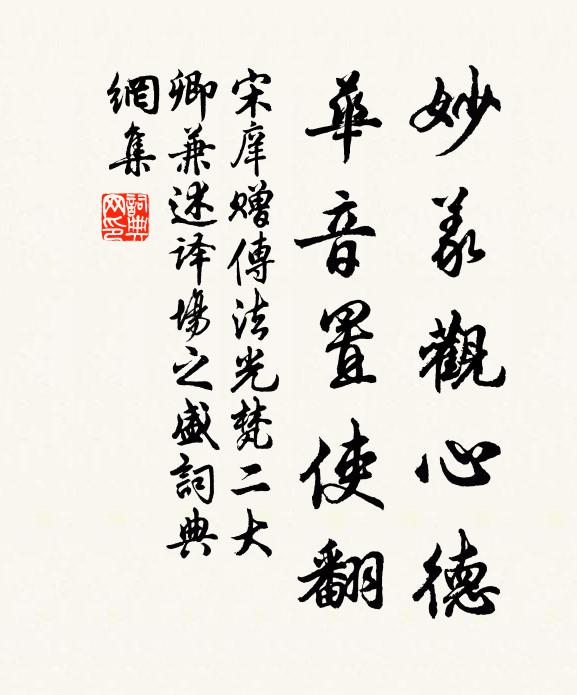 妙义觀心德
華音置使翻
宋庠赠傳法光梵二大
卿兼述译場之盛詞典
網集
詞典网印